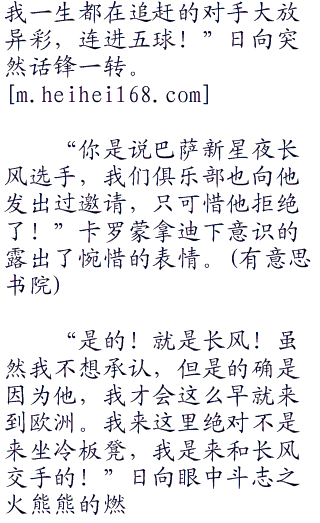 我一生都在追赶的对手大放
异彩，连进五球！”日向突
然话锋一转。
[m.heihei168.com]
“你是说巴萨新星夜长
风选手，我们俱乐部也向他
发出过邀请，只可惜他拒绝
了！”卡罗蒙拿迪下意识的
露出了惋惜的表情。(有意思
书院)
“是的！就是长风！虽
然我不想承认，但是的确是
因为他，我才会这么早就来
到欧洲。我来这里绝对不是
来坐冷板凳，我是来和长风
交手的！”日向眼中斗志之
火熊熊的燃